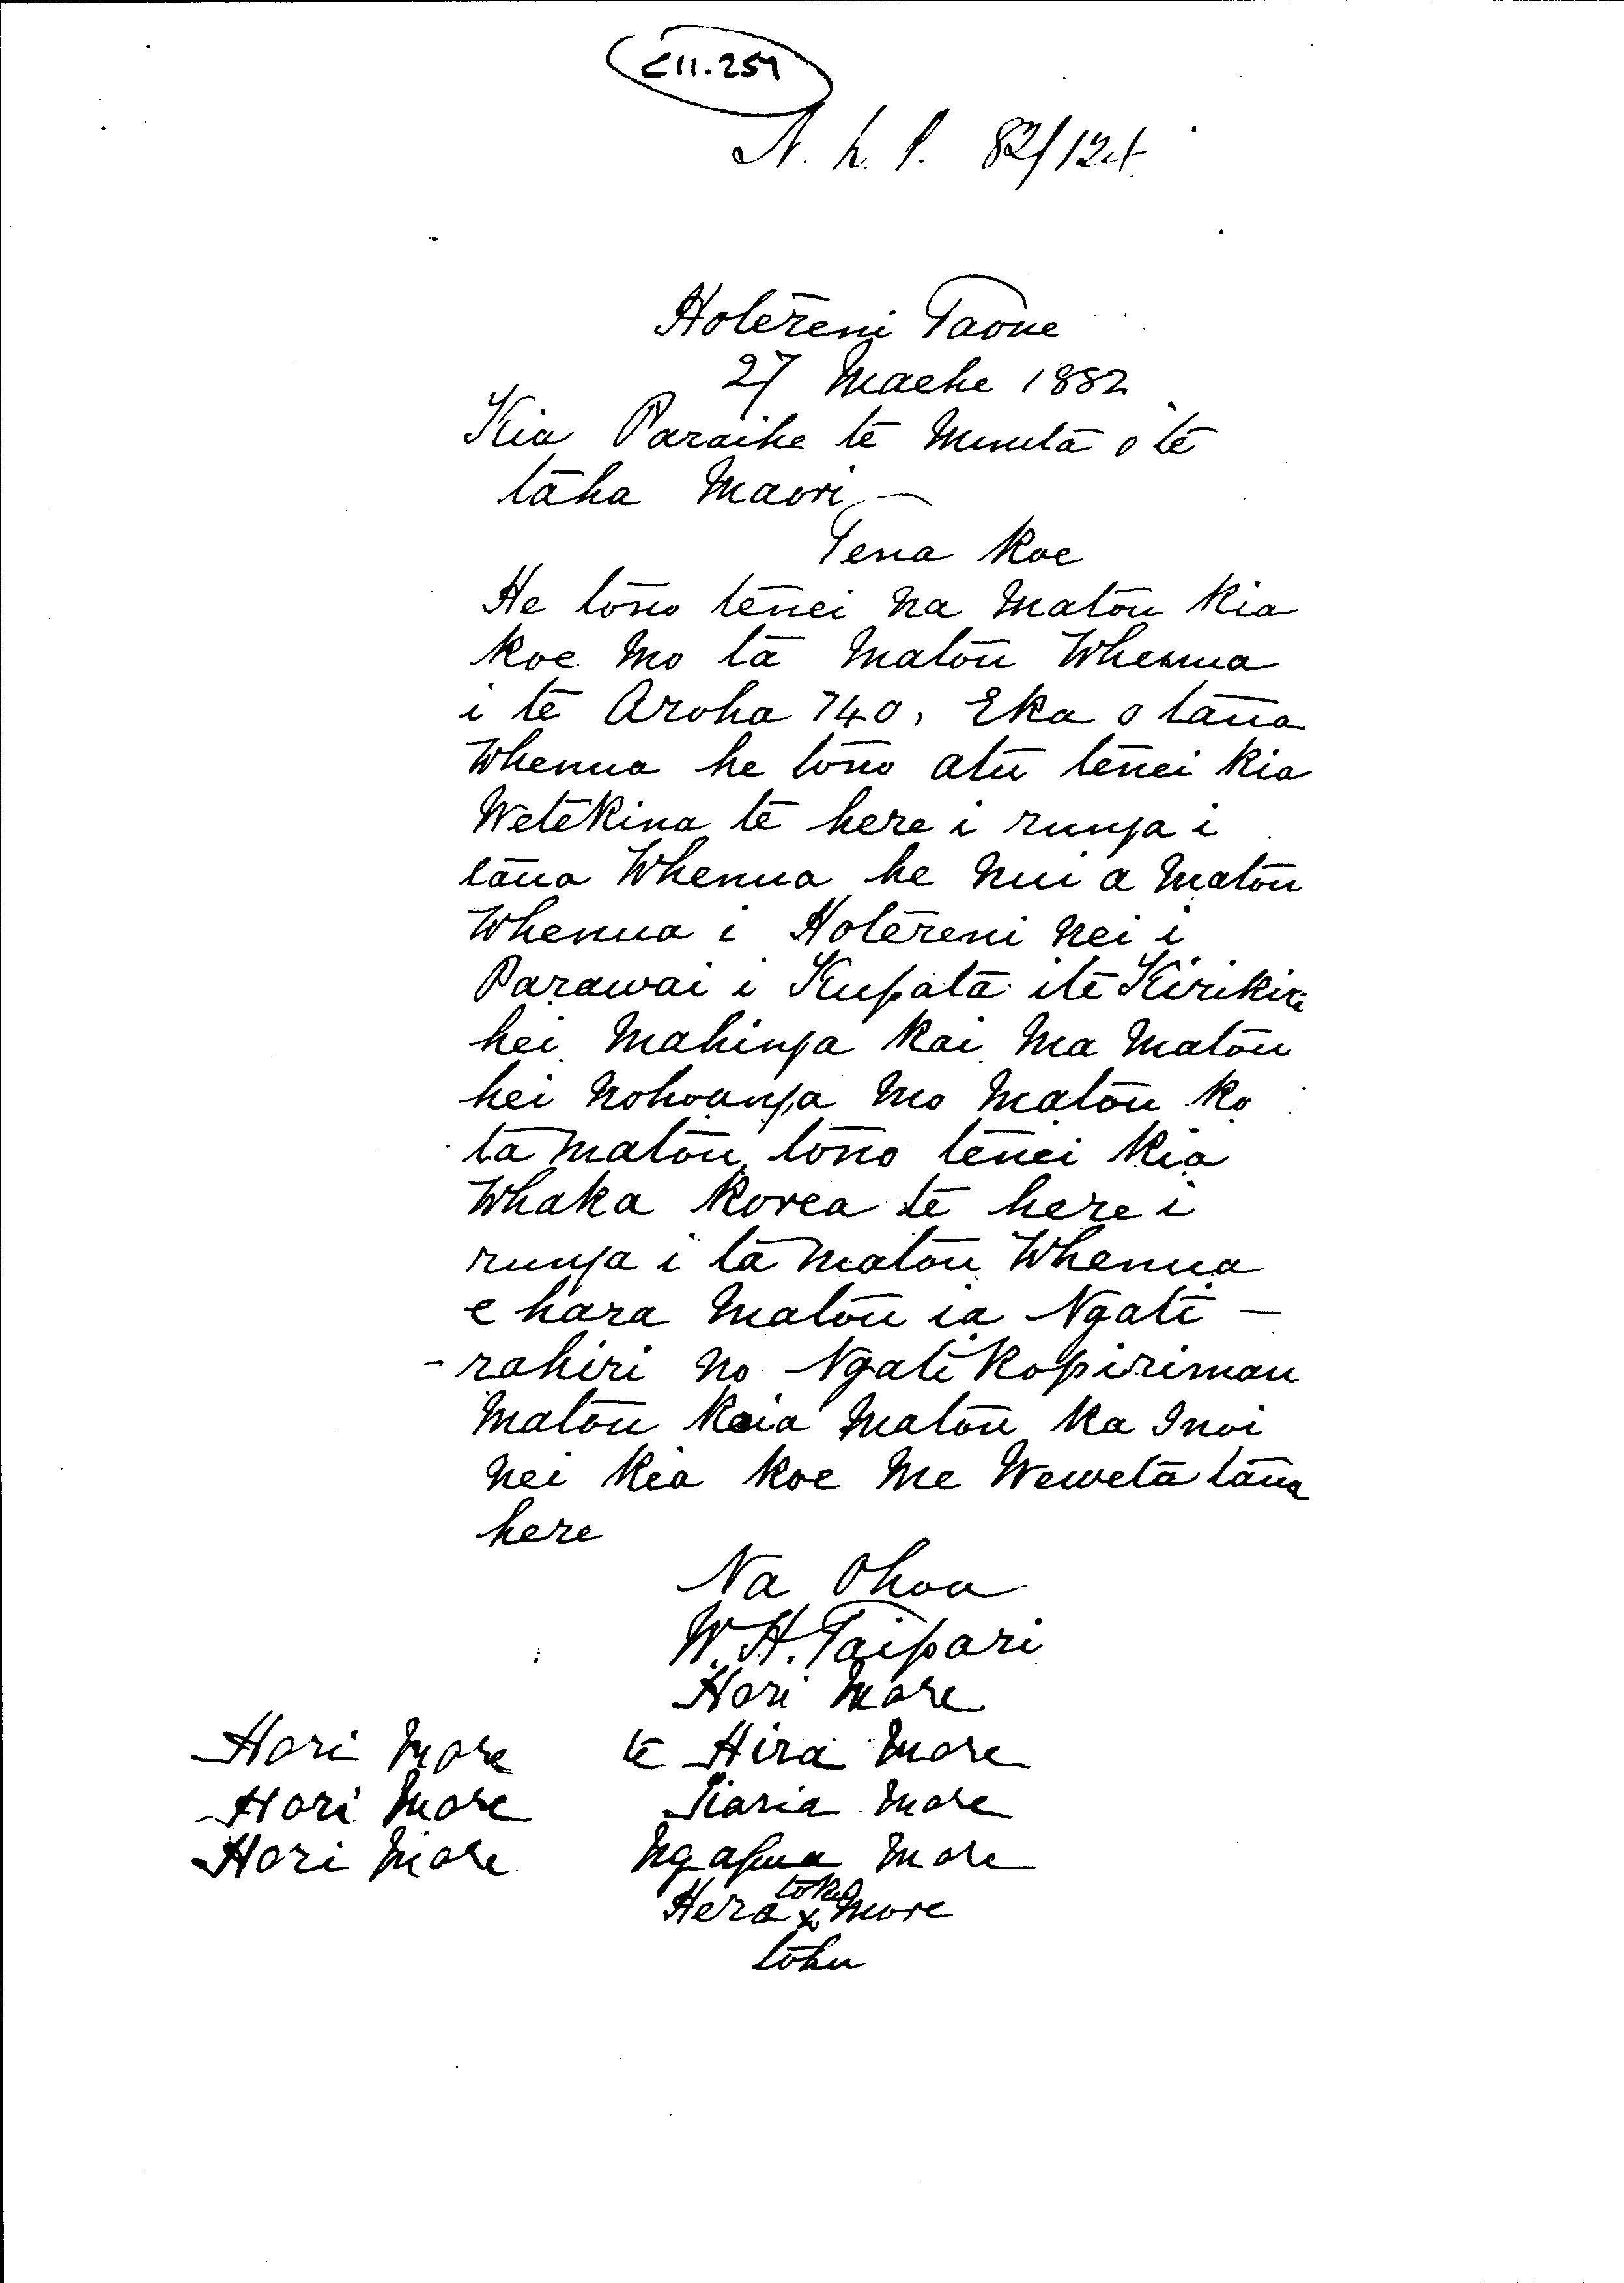 C11.259
N. L. P. 82/124
Hotereni Taone
27 Maehe 1882
Kia Paraihe te Minita o te
taha Maori, —
Tena Koe
He tono tenei na Matou Kia
Koe Mo ta Matou Whenua
i te Aroha 740, Eka o taua
Whenua he tono atu tenei kia
Wetekina te here i runga i
taua Whenua he nui a Matou
Whenua i Hotereni nei i
Parawai i Kupata i te Kirikiri
hei Mahinga Kai Ma Matou
hei Nohoanga Mo Matou Ko
ta Matou tono tenei Kia
Whaka Korea te here i
runga i ta Matou Whenua
e hara Matou ia Ngati —
- rahiri no Ngati Kopirimau
Matou Koia Matou Ka Inoi
nei Kia Koe Me Weweta taua
here
Na Ohoa
W. H. Taipari
Hori More
Hori More te Hira More
Hori More Tiaria More
Hori More Ngapua More
Hera x More
tohu